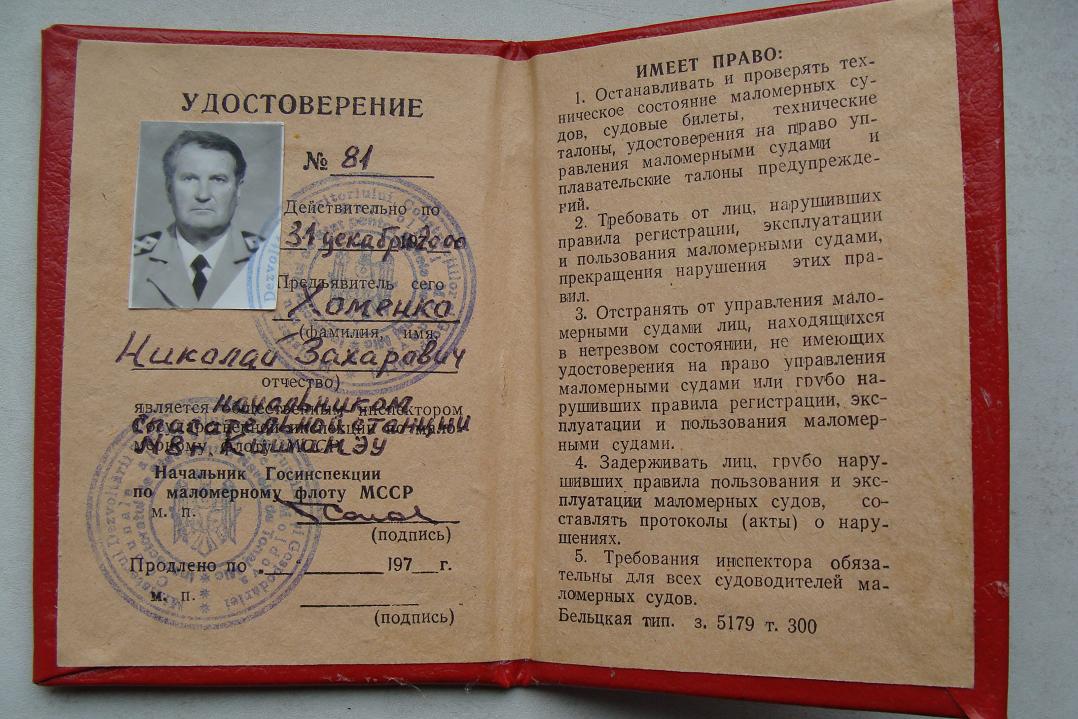 УДОСТОВЕРЕНИЕ
№ 81
Действительно по
31 декабря 2000
Предъявитель сего
Хоменко
(фамилия, имя,
Николай Захарович
отчество)
является общественным инспектором
начальником
спасательной станции
N В г. КишинЭу
Начальник Госинспекции
по маломерному флоту МССР
м. п.
(подпись)
Продлено по 197 г.
м. п.
(подпись)
ИМЕЕТ ПРАВО:
1. Останавливать и проверять тех-
ническое состояние маломерных су-
дов, судовые билеты, технические
талоны, удостоверения на право уп-
равления маломерными судами и
плавательские талоны предупрежде-
ний.
2. Требовать от лиц, нарушивших
правила регистрации, эксплуатации
и пользования маломерными судами,
прекращения нарушения этих пра-
вил.
3. Отстранять от управления мало-
мерными судами лиц, находящихся
в нетрезвом состоянии, не имеющих
удостоверения на право управления
маломерными судами или грубо на-
рушивших правила регистрации, экс-
плуатации и пользования маломер-
ными судами.
4. Задерживать лиц, грубо нару-
шивших правила пользования и экс-
плуатации маломерных судов, со-
ставлять протоколы (акты) о нару-
шениях.
5. Требования инспектора обяза-
тельны для всех судоводителей ма-
ломерных судов.
Бельцкая тип. з. 5179 т. 300